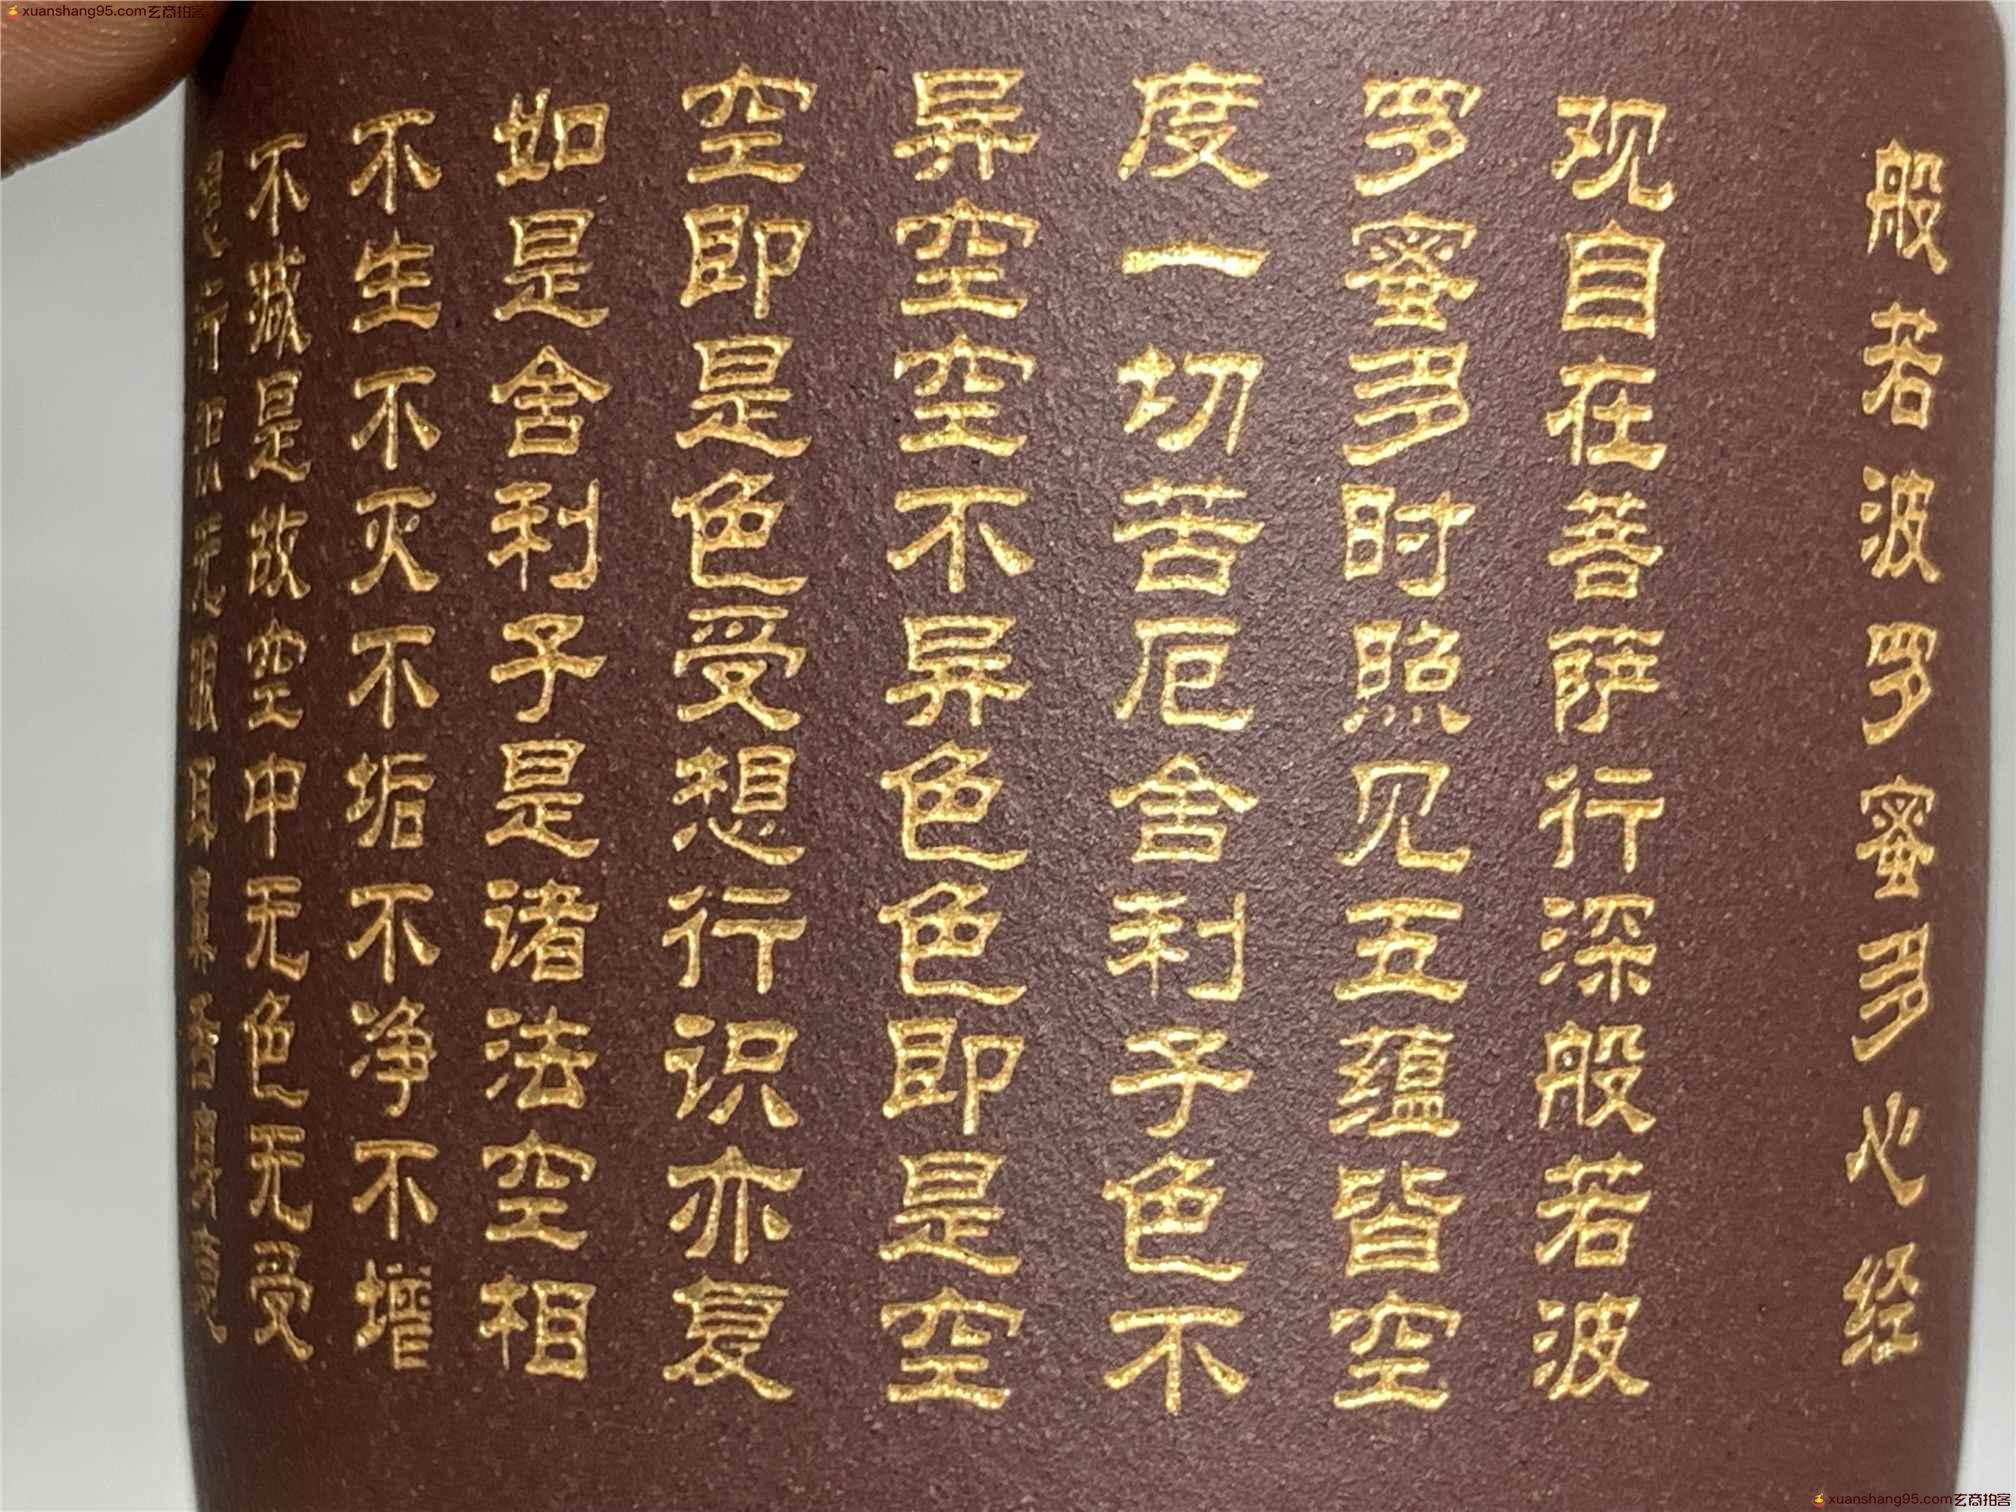 xuanshang95.com玄商拍客
般若波罗蜜多心经
观自在菩萨行深般若波
罗蜜多时照见五蕴皆空
度一切苦厄舍利子色不
异空空不异色色即是空
空即是色受想行识亦复
如是舍利子是诸法空相
不生不灭不垢不净不增
不减是故空中无色无受
想行识无眼耳鼻舌身意
xuanshang95.com玄商拍客